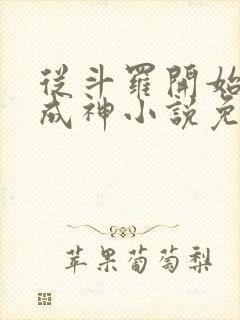 從斗羅開始
成神小説免
苹果葡萄梨